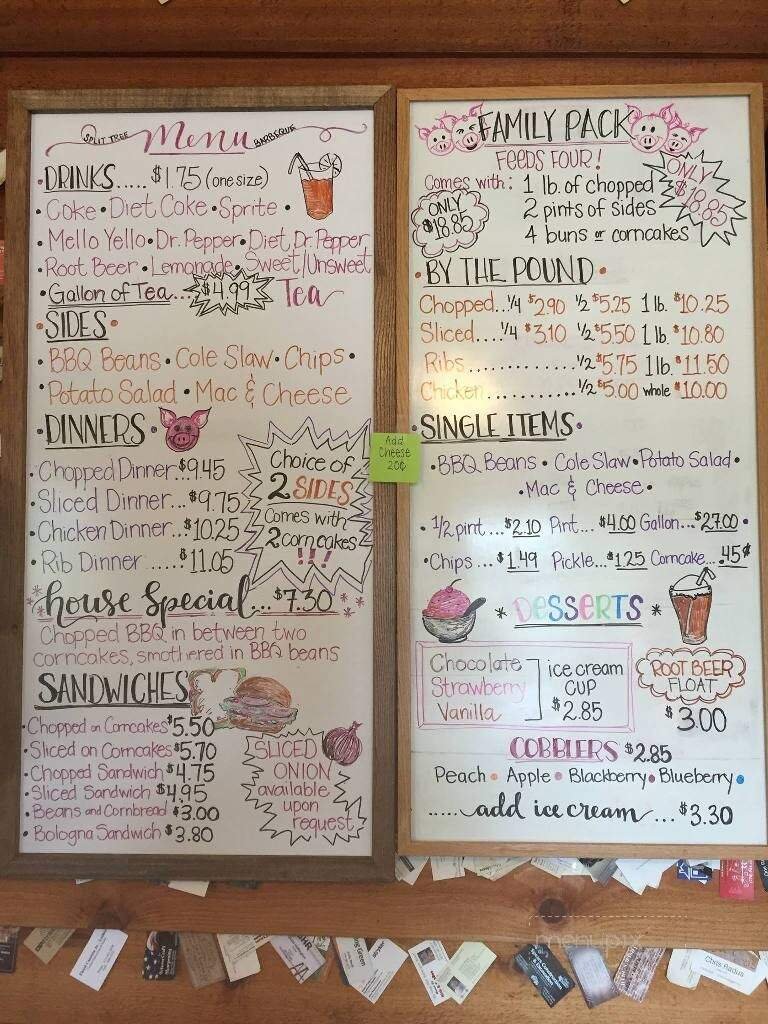 SPLIT TREE Menu BARBEQUE
• DRINKS..... $1.75 (one size)
• Coke • Diet Coke • Sprite •
• Mello Yello • Dr. Pepper • Diet Dr. Pepper
• Root Beer • Lemonade • Sweet/Unsweet
Tea
• Gallon of Tea... $4.99
• SIDES •
• BBQ Beans • Cole Slaw • Chips •
• Potato Salad • Mac & Cheese
• DINNERS •
• Chopped Dinner..$9.45
• Sliced Dinner... $9.75
• Chicken Dinner...$10.25
• Rib Dinner ..... $11.05
Choice of
2 SIDES
Comes with
2 corncakes
!!!
* house Special... $7.30 *
Chopped BBQ in between two
corncakes, smothered in BBQ beans
SANDWICHES
• Chopped on Corncakes $5.50
• Sliced on Corncakes $5.70
• Chopped Sandwich $4.75
• Sliced Sandwich $4.95
• Beans and Cornbread $3.00
• Bologna Sandwich $3.80
SLICED
ONION
available
upon
request
Add
Cheese
20¢
FAMILY PACK
FEEDS FOUR!
Comes with: 1 lb. of chopped
2 pints of sides
4 buns or corncakes
ONLY
$18.85
ONLY
$18.85
• BY THE POUND •
Chopped...1/4 $2.90 1/2 $5.25 1 lb. $10.25
Sliced....1/4 $3.10 1/2 $5.50 1 lb. $10.80
Ribs ............ 1/2 $5.75 1 lb. $11.50
Chicken............1/2 $5.00 whole $10.00
• SINGLE ITEMS •
• BBQ Beans • Cole Slaw • Potato Salad •
• Mac & Cheese •
• 1/2 pint... $2.10 Pint... $4.00 Gallon... $27.00 •
• Chips... $1.49 Pickle...$1.25 Corncake... .45¢
* DESSERTS *
Chocolate
Strawberry
Vanilla
ice cream
CUP
$2.85
ROOT BEER
FLOAT
$3.00
COBBLERS $2.85
Peach • Apple • Blackberry • Blueberry •
.....add ice cream... $3.30
Chris Radus